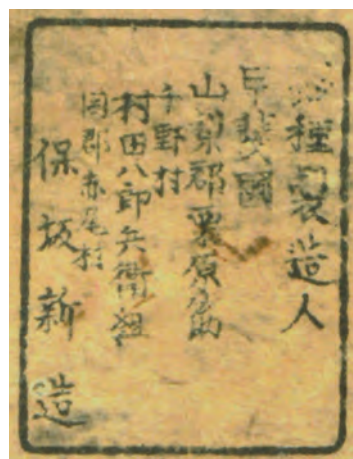 蚕種製造人
甲斐國
山梨郡栗原筋
千野村
村田八郎兵衛組
同郡赤尾村
保坂新造